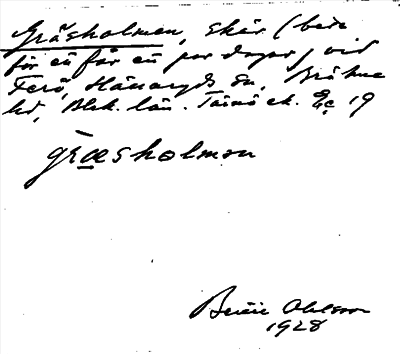 Gräsholmen, skär (bete
för en får en par dagar) vid
Terö, Hällaryds sn, Bräkne
hd, Blek. län. Tärnö ek. Ec 19
græsholmen
Bertil Ohlsson
1928